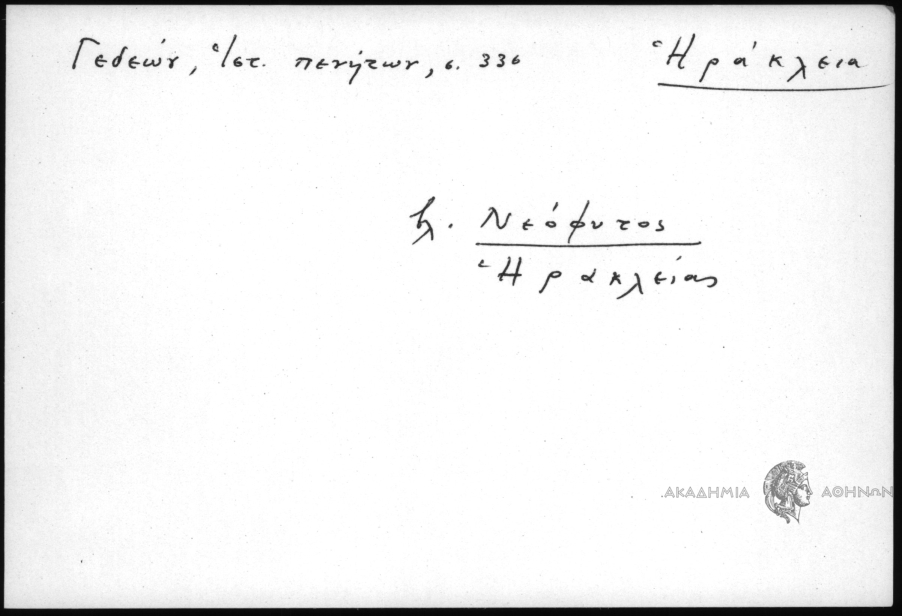 Γεδεών, Ἱστ. πενήτων, σ. 336
Ἡράκλεια
βλ. Νεόφυτος
Ἡρακλείας
ΑΚΑΔΗΜΙΑ ΑΘΗΝΩΝ